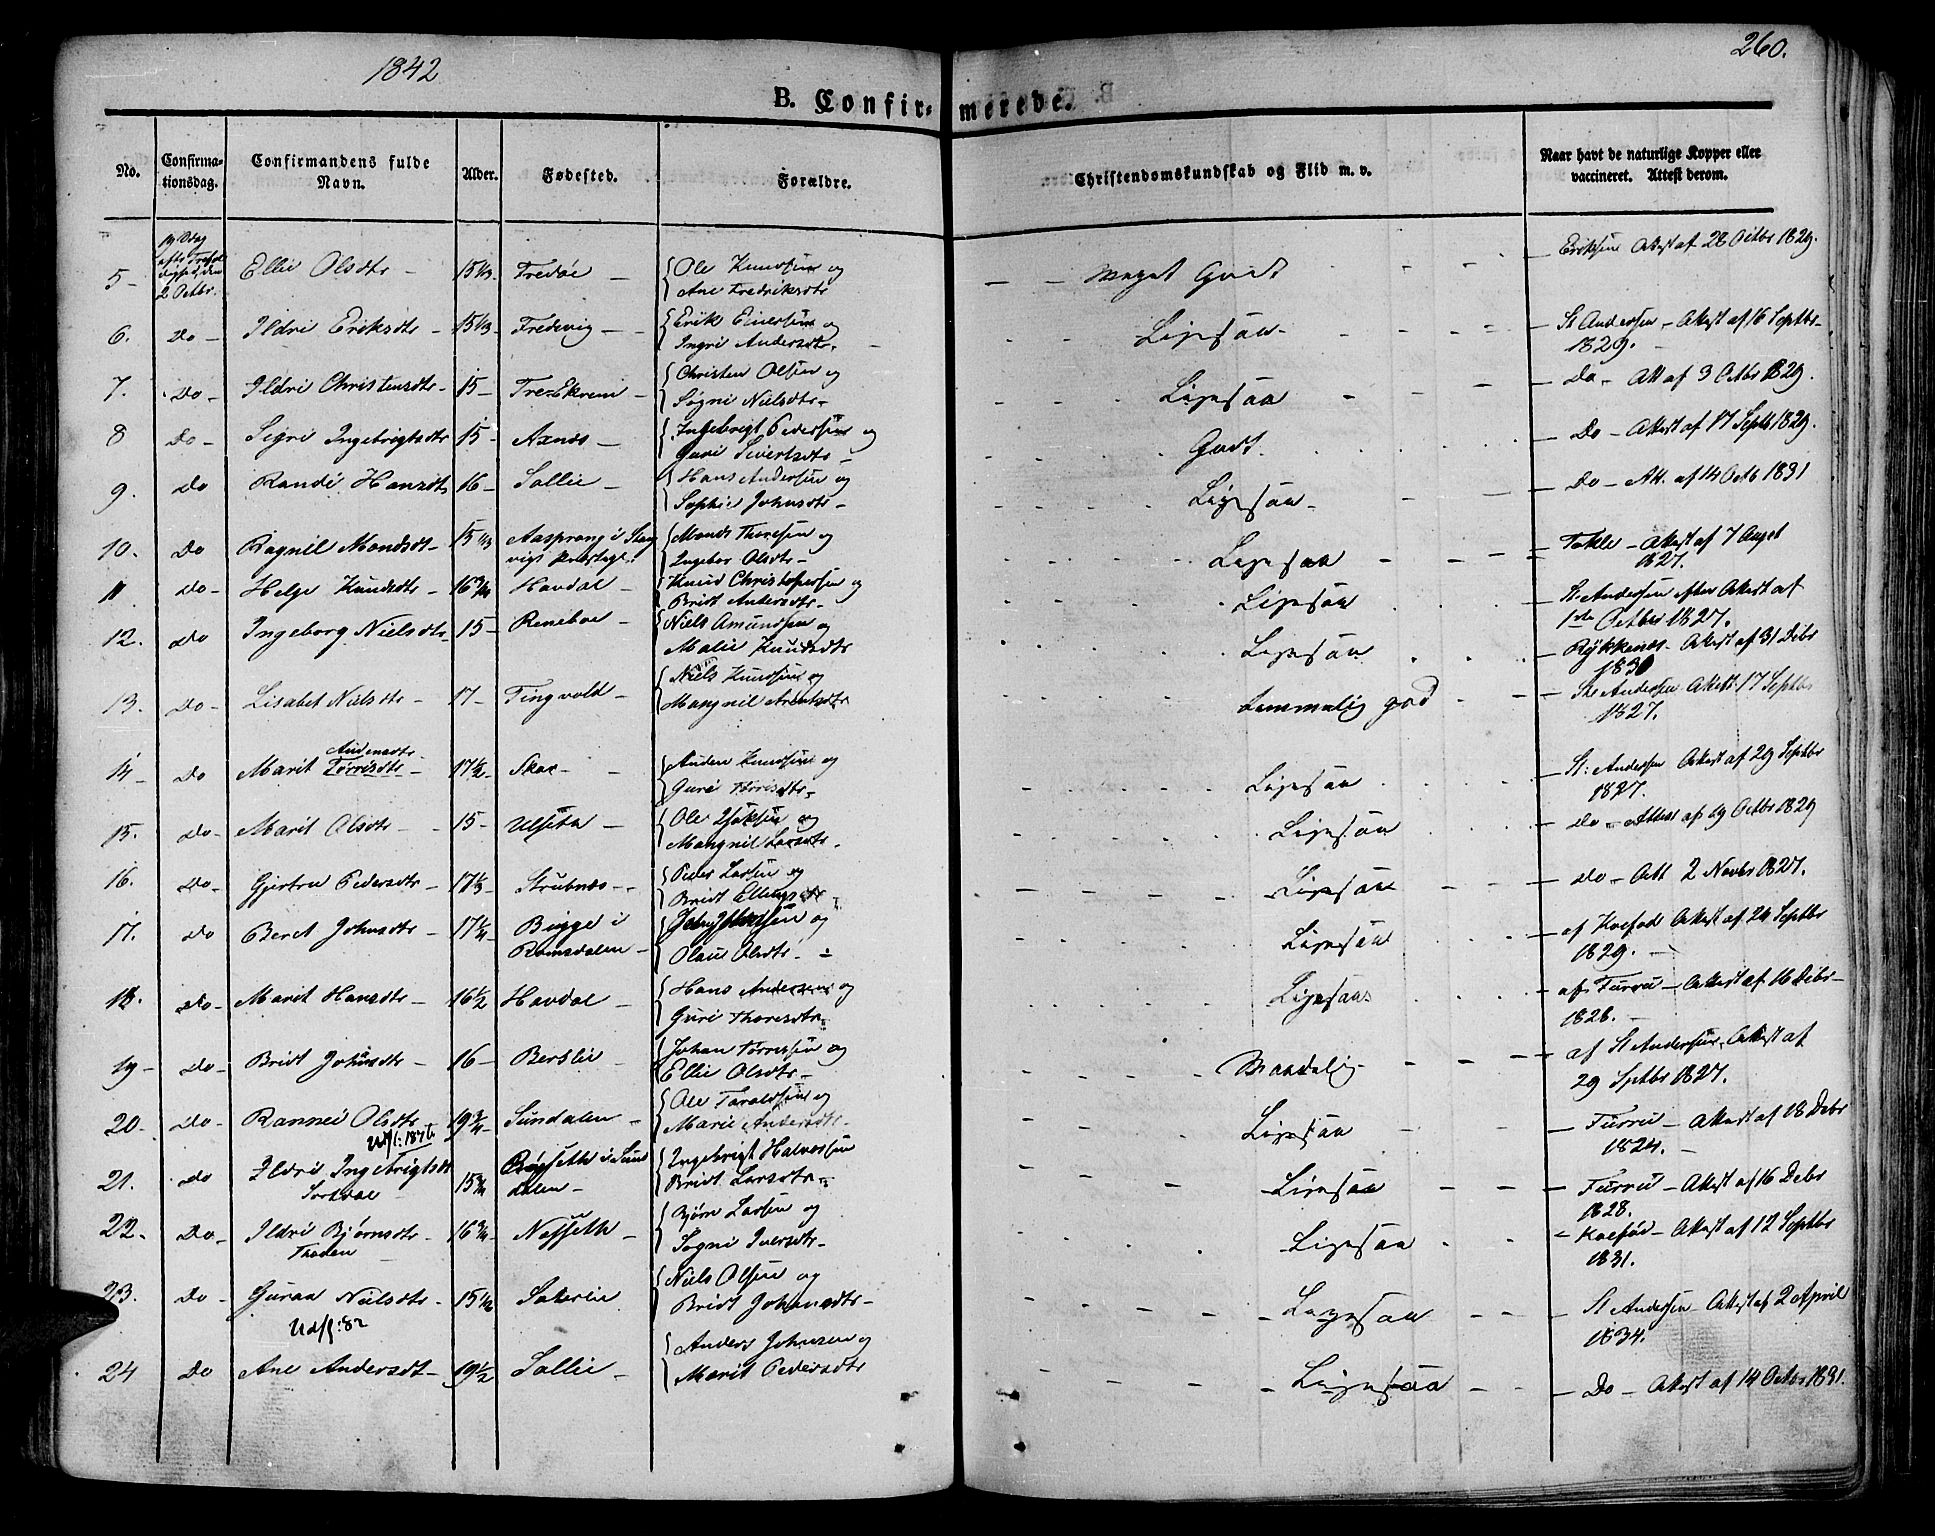 1842
260.
B. Confirmerede.
No.
Confirmationsdag.
Confirmandens fulde Navn.
Alder.
Fødested.
Forældre.
Christendomskundskab og Flid m. v.
Naar havt de naturlige Kopper eller vaccineret. Attest derom.
5 - 2 Octbr. Ellie Olsdtr - 15 1/3 Fredøe {Ole Knudsen og Ane Fredriksdtr - Meget Godt - Eriksen Attest af 28 Octbr 1829.
6. Do - Ildri Eriksdtr - 15 1/3 Fredevig - {Erik Einersen og Ingri Andersdtr. - Ligesaa - St Andersen - Attest af 16 Septbr 1829.
7. Do - Ildri Christensdtr - 15 - {Christen Olsen og Sogni Nielsdtr - Ligesaa - Do - Att af 3 Octbr 1829.
8 Do - Sigri Ingebrigtsdtr 15 - Axnæs - {Ingebrigt Pedersen og Guri Sivertsdtr - Godt. - Do - Attest af 17 Septb 1829.
9. Do Randi Hansdtr 16 - Sollie - {Hans Andersen og Sophie Johnsdtr - Ligesaa - Do - Att. af 14 Octb 1831
10. Do Ragnil Mondsdt - 15 1/3 Aasprong i Stangvigs Præstegl. {Monds Thoresen og Ingebor Olsdtr - Ligesaa - Takle - Attest af 7 August 1827.
11 Do - Helge Knudsdtr - 16 3/4 Havdal - {Knud Christophersen og Bridt Andersdtr - Ligesaa - St. Andersen efter Attest af 1ste Octber 1827.
12. Do Ingeborg Nielsdtr 15 - Reneboe - {Niels Amundsen og Malie Knudsdtr Ligesaa - Rykkenæs - Attest af 31 Debr 1830
13. Do - Lisabet Nielsdtr - 17 - Tingvold - {Niels Knudsen og Mangnil Arentsdtr Temmelig god - St Andersen Attest 17 Septbr 1827.
14 - Do - Marit Audensdtr Torrisdtr - 17 1/2 - Skar - {Auden Knudsen og Guri Torrisdtr - Ligesaa - St: Andersen Attest af 29 Septbr 1827.
15. Do - Marit Olsdtr - 15 - Ulseth - {Ole Isaksen og Mangnil Larsdtr. Ligesaa - Do - Attest af 19 Octbr 1829
16. Do - Gjertru Pedersdtr - 17 1/3 - Strubnæs - {Peder Larsen og Bridt Ellingsdtr Ligesaa - Do - Att 2 Novbr 1827.
17. Do Beret Johnsdtr - 17 1/4 - Bugge i Romsdalen - og Olaue Olsdtr - Ligesaa - af Koefod Attest af 24 Septbr 1829.
18. Do - Marit Hansdtr - 16 1/2 Havdal - {Hans Andersen og Guri Thoresdtr. Ligesaa - af Furru - Attest af 16 Debr 1828.
19 - Do - Bridt Johnsdtr - 16 - Berslie - {Johan Torresen og Ellie Olsdtr - Maadelig - af St Andersen, Attest af 29 Sptbr 1827.
20. Do - Rannei Olsdtr 19 3/4 - Sundalen - {Ole Taraldsen og Marie Andersdtr Ligesaa - Furru - Attest af 18 Debr 1824.
Udfl: 1876
21. Do Ildri Ingebrigtsdtr 15 3/4 Sundalen - {Ingebrigt Halvorsen Bridt Larsdtr - Ligesaa - Furru - Attest af 16 Debr 1828.
22. Do - Ildri Bjørnsdtr - 16 3/4 - Næsseth - {Bjørn Larsen og Sogni Iversdtr - Ligesaa - Koefod - Attest af 12 Septbr 1831.
23. Do - Guran Nielsdtr - 15 1/2 {Niels Olsen og Bridt Johansdtr - Ligesaa - St Andersen - Attest af 2 April 1834.
Udfl: 82
24 Do Ane Andersdt - 19 1/2 Sollie - {Anders Johnsen og Marit Pedersdtr Ligesaa - Do - Attest af 14 Octbr 1831.